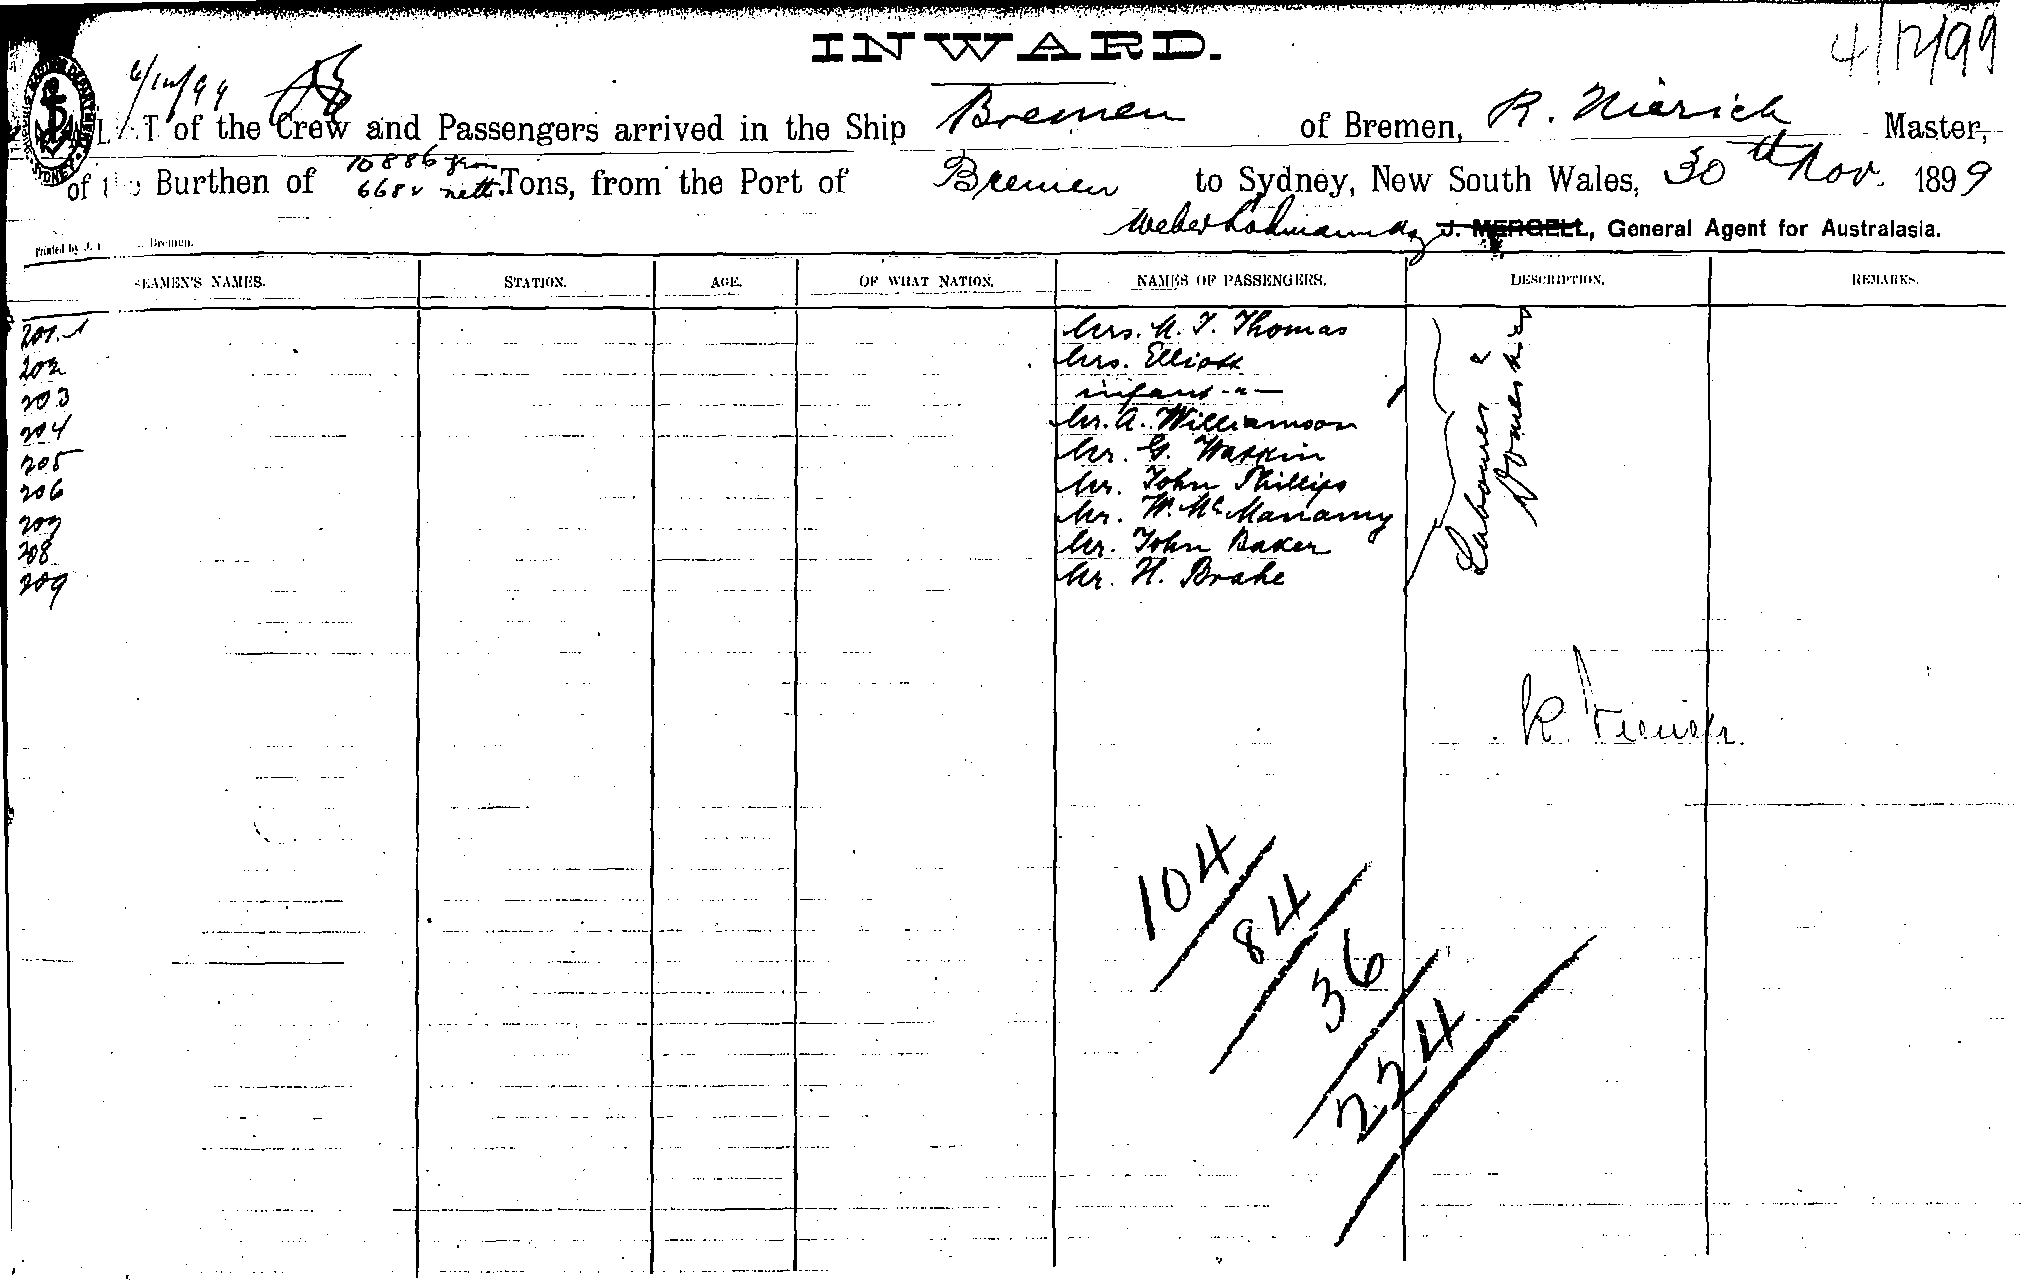 INWARD.
4/12/99
4/12/99
LIST of the Crew and Passengers arrived in the Ship Bremen of Bremen, R. Nierich Master,
10886 gross
of the Burthen of 6682 nett. Tons, from the Port of Bremen to Sydney, New South Wales, 30th Nov. 1899
Weber Lohmann & Co J. MERGELL, General Agent for Australasia.
Printed by J. Bremen.
SEAMEN'S NAMES. STATION. AGE. OF WHAT NATION. NAMES OF PASSENGERS. DESCRIPTION. REMARKS.
201. Mrs. A. T. Thomas
202 Mrs. Elliott
203 infant -"-
204 Mr. A. Williamson
205 Mr. G. Watkin
206 Mr. John Phillips
207 Mr. W. McManamy
208 Mr. John Baker
209 Mr. H. Brake
Labourer &
Domestics
R. Nierich.
104
84
36
224